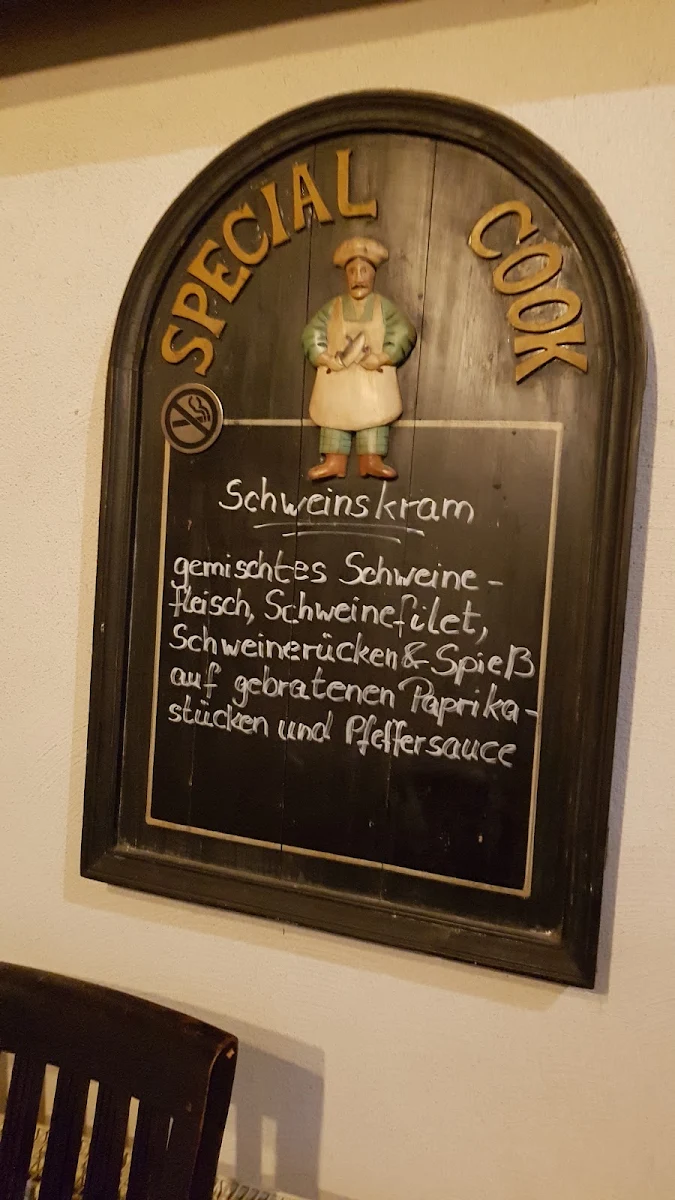 SPECIAL COOK
Schweinskram
gemischtes Schweine-
fleisch, Schweinefilet,
Schweinerücken & Spieß
auf gebratenen Paprika-
stücken und Pfeffersauce